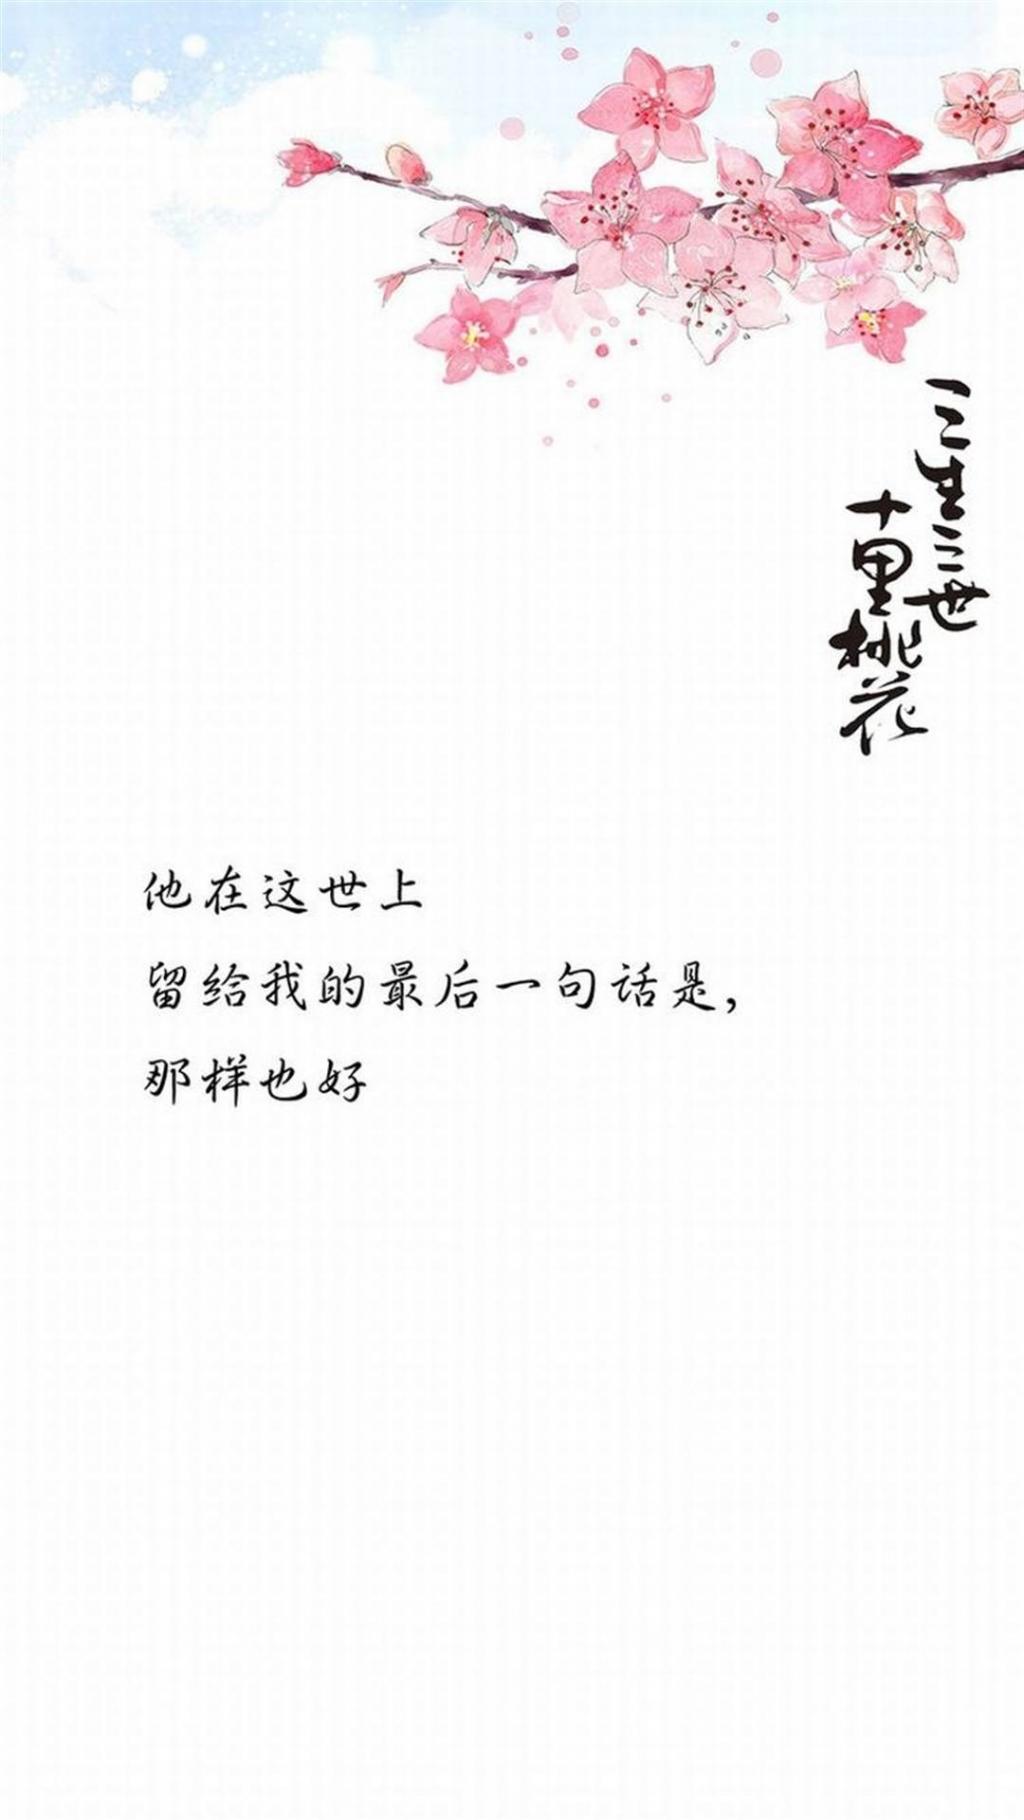 三生三世
十里桃花
他在这世上
留给我的最后一句话是，
那样也好